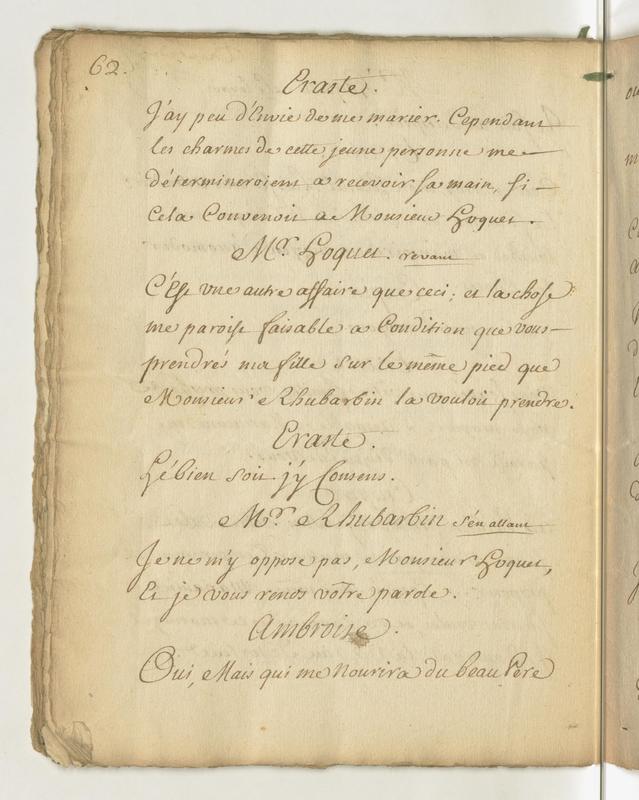 62.
Eraste.
J'ay peu d'Envie de me marier. Cependant
les charmes de cette jeune personne me
détermineroient a recevoir sa main, si
Cela Convenoit a Monsieur Hoquet.
Mr. Hoquet. revant
C'Est vne autre affaire que ceci; et la chose
me paroist faisable a Condition que vous
prendrés ma fille sur le même pied que
Monsieur Rhubarbin la vouloit prendre.
Eraste.
Hé bien soit j'y Consens.
Mr. Rhubarbin s'en allant
Je ne m'y oppose pas, Monsieur Hoquet,
Et je vous rends votre parole.
Ambroise.
Oui, Mais qui me Nourira du beau Pere